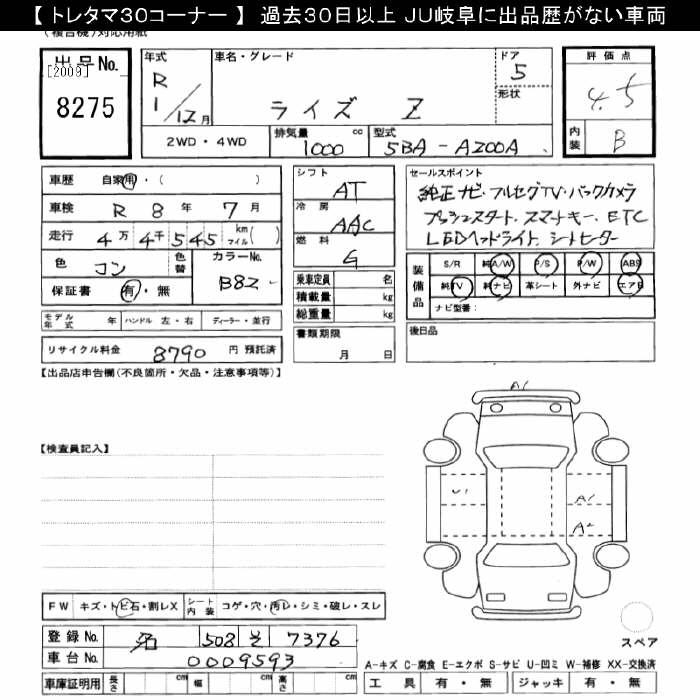 【 トレタマ30コーナー 】 過去30日以上 JU岐阜に出品歴がない車両
(複合機)対応用紙
出品No.
[2009]
8275
年式 車名・グレード ドア 評価点
R 1/12月 ライズ Z 5 4.5
形状
2WD・4WD 排気量 1000 cc 型式 5BA - A200A 内装 B
車歴 自家用・( )
車検 R 8 年 7 月
走行 4万 4千 545 km マイル( )
色 コン 色替 カラーNo. B82
保証書 有・無
モデル年式 年 ハンドル 左・右 ディーラー・並行
リサイクル料金 8790 円 預託済
シフト AT
冷房 AAC
燃料 G
乗車定員 名
積載量 kg
総重量 kg
書類期限
月 日
セールスポイント
純正ナビ・フルセグTV・バックカメラ
プッシュスタート・スマートキー・ETC
LEDヘッドライト、シートヒーター
装備品 S/R 純A/W P/S P/W ABS
純TV 純ナビ 革シート 外ナビ エアB
ナビ型番:
後日品
【出品店申告欄(不良箇所・欠品・注意事項等)】
【検査員記入】
A1
U1
A1
A2
FW キズ・トビ石・割レX シート内装 コゲ・穴・汚レ・シミ・破レ・スレ
登録No. 508 そ 7376
車台No. 0009593
車庫証明用 長さ cm 幅 cm 高さ cm
スペア
A-キズ C-腐食 E-エクボ S-サビ U-凹ミ W-補修 XX-交換済
工具 有・無 ジャッキ 有・無